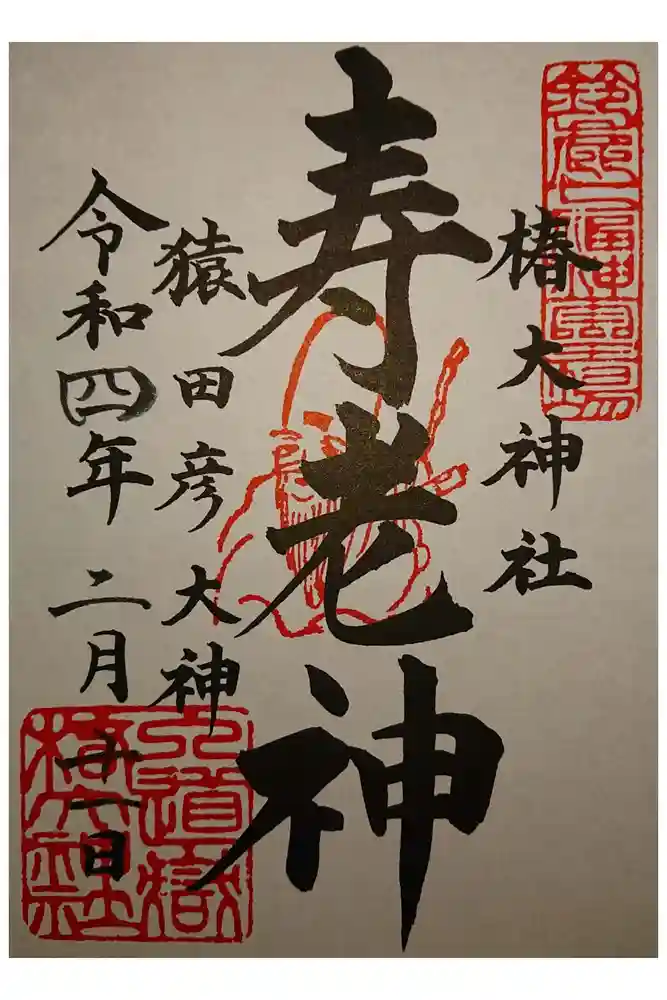 鈴鹿七福神霊場
椿大神社
寿老神
猿田彦大神
令和四年 二月十一日
入道嶽
椿大神社